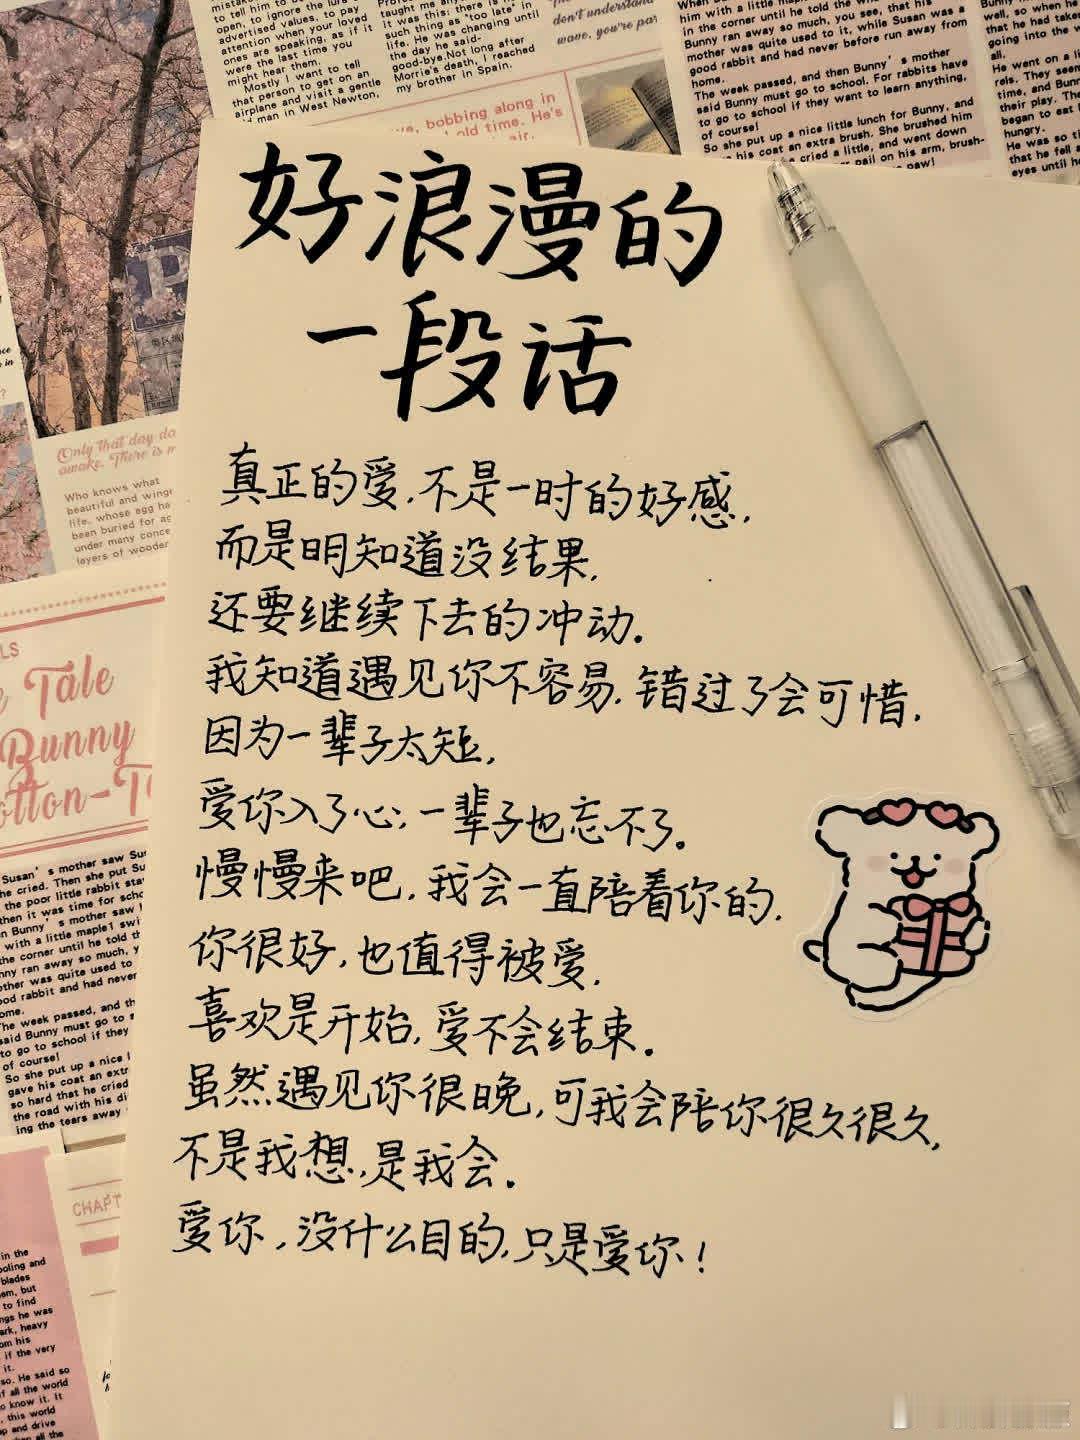 好浪漫的
一段话
真正的爱,不是一时的好感,
而是明知道没结果,
还要继续下去的冲动。
我知道遇见你不容易,错过了会可惜,
因为一辈子太短,
爱你入了心;一辈子也忘不了。
慢慢来吧,我会一直陪着你的,
你很好,也值得被爱,
喜欢是开始,爱不会结束。
虽然遇见你很晚,可我会陪你很久很久,
不是我想,是我会。
爱你,没什么目的,只是爱你!
mistake
to tell him to
pen, to ignore the lure
advertised values, to pay
attention when your loved
ones are speaking, as if it
were the last time you
might hear them.
Mostly I want to tell
that person to get on an
airplane and visit a gentle
old man in West Newton,
taught me any
it was this: there is n
such thing as "too late" in
life. He was changing until
the day he said-
good-bye.Not long after
Morrie's death, I reached
my brother in Spain.
don't understand
wave, you're par
bobbing along in
old time. He's
air.
him with a little maple
in the corner until he told the
Bunny ran away so much, you see, that his
mother was quite used to it, while Susan was a
good rabbit and had never before run away from
home.
The week passed, and then Bunny's mother
said Bunny must go to school. For rabbits have
to go to school if they want to learn anything,
of course!
So she put up a nice little lunch for Bunny, and
his coat an extra brush. She brushed him
cried a little, and went down
pail on his arm, brush-
paw!
well, so when he
that he had taken
going into the w
all.
He went on a li
rels. They seem
time, and Bunn
their play. The
began to eat
hungry.
He was so ti
that he fell a
eyes until he
P
Only that day da
awake. There is m
Who knows what
beautiful and winge
life, whose egg ha
been buried for ag
under many conce
layers of wooder
LS
Tale
Bunny
otton-T
Susan's mother saw Su
he cried. Then she put S
the poor little rabbit sta
then it was time for scho
Bunny's mother saw
with a little maple1 swi
the corner until he told th
nny ran away so much, y
other was quite used to
ood rabbit and had never
ome.
he week passed, and th
said Bunny must go to s
to go to school if they
of course!
So she put up a nice l
gave his coat an extr
so hard that he cried
the road with his di
ing the tears away
CHAPT
in the
ooling and
blades
em, but
to find
ngs he was
ark, heavy
om his
if the very
it.
so. He said so
f all the world
know it. It
this world
p and drive
all the